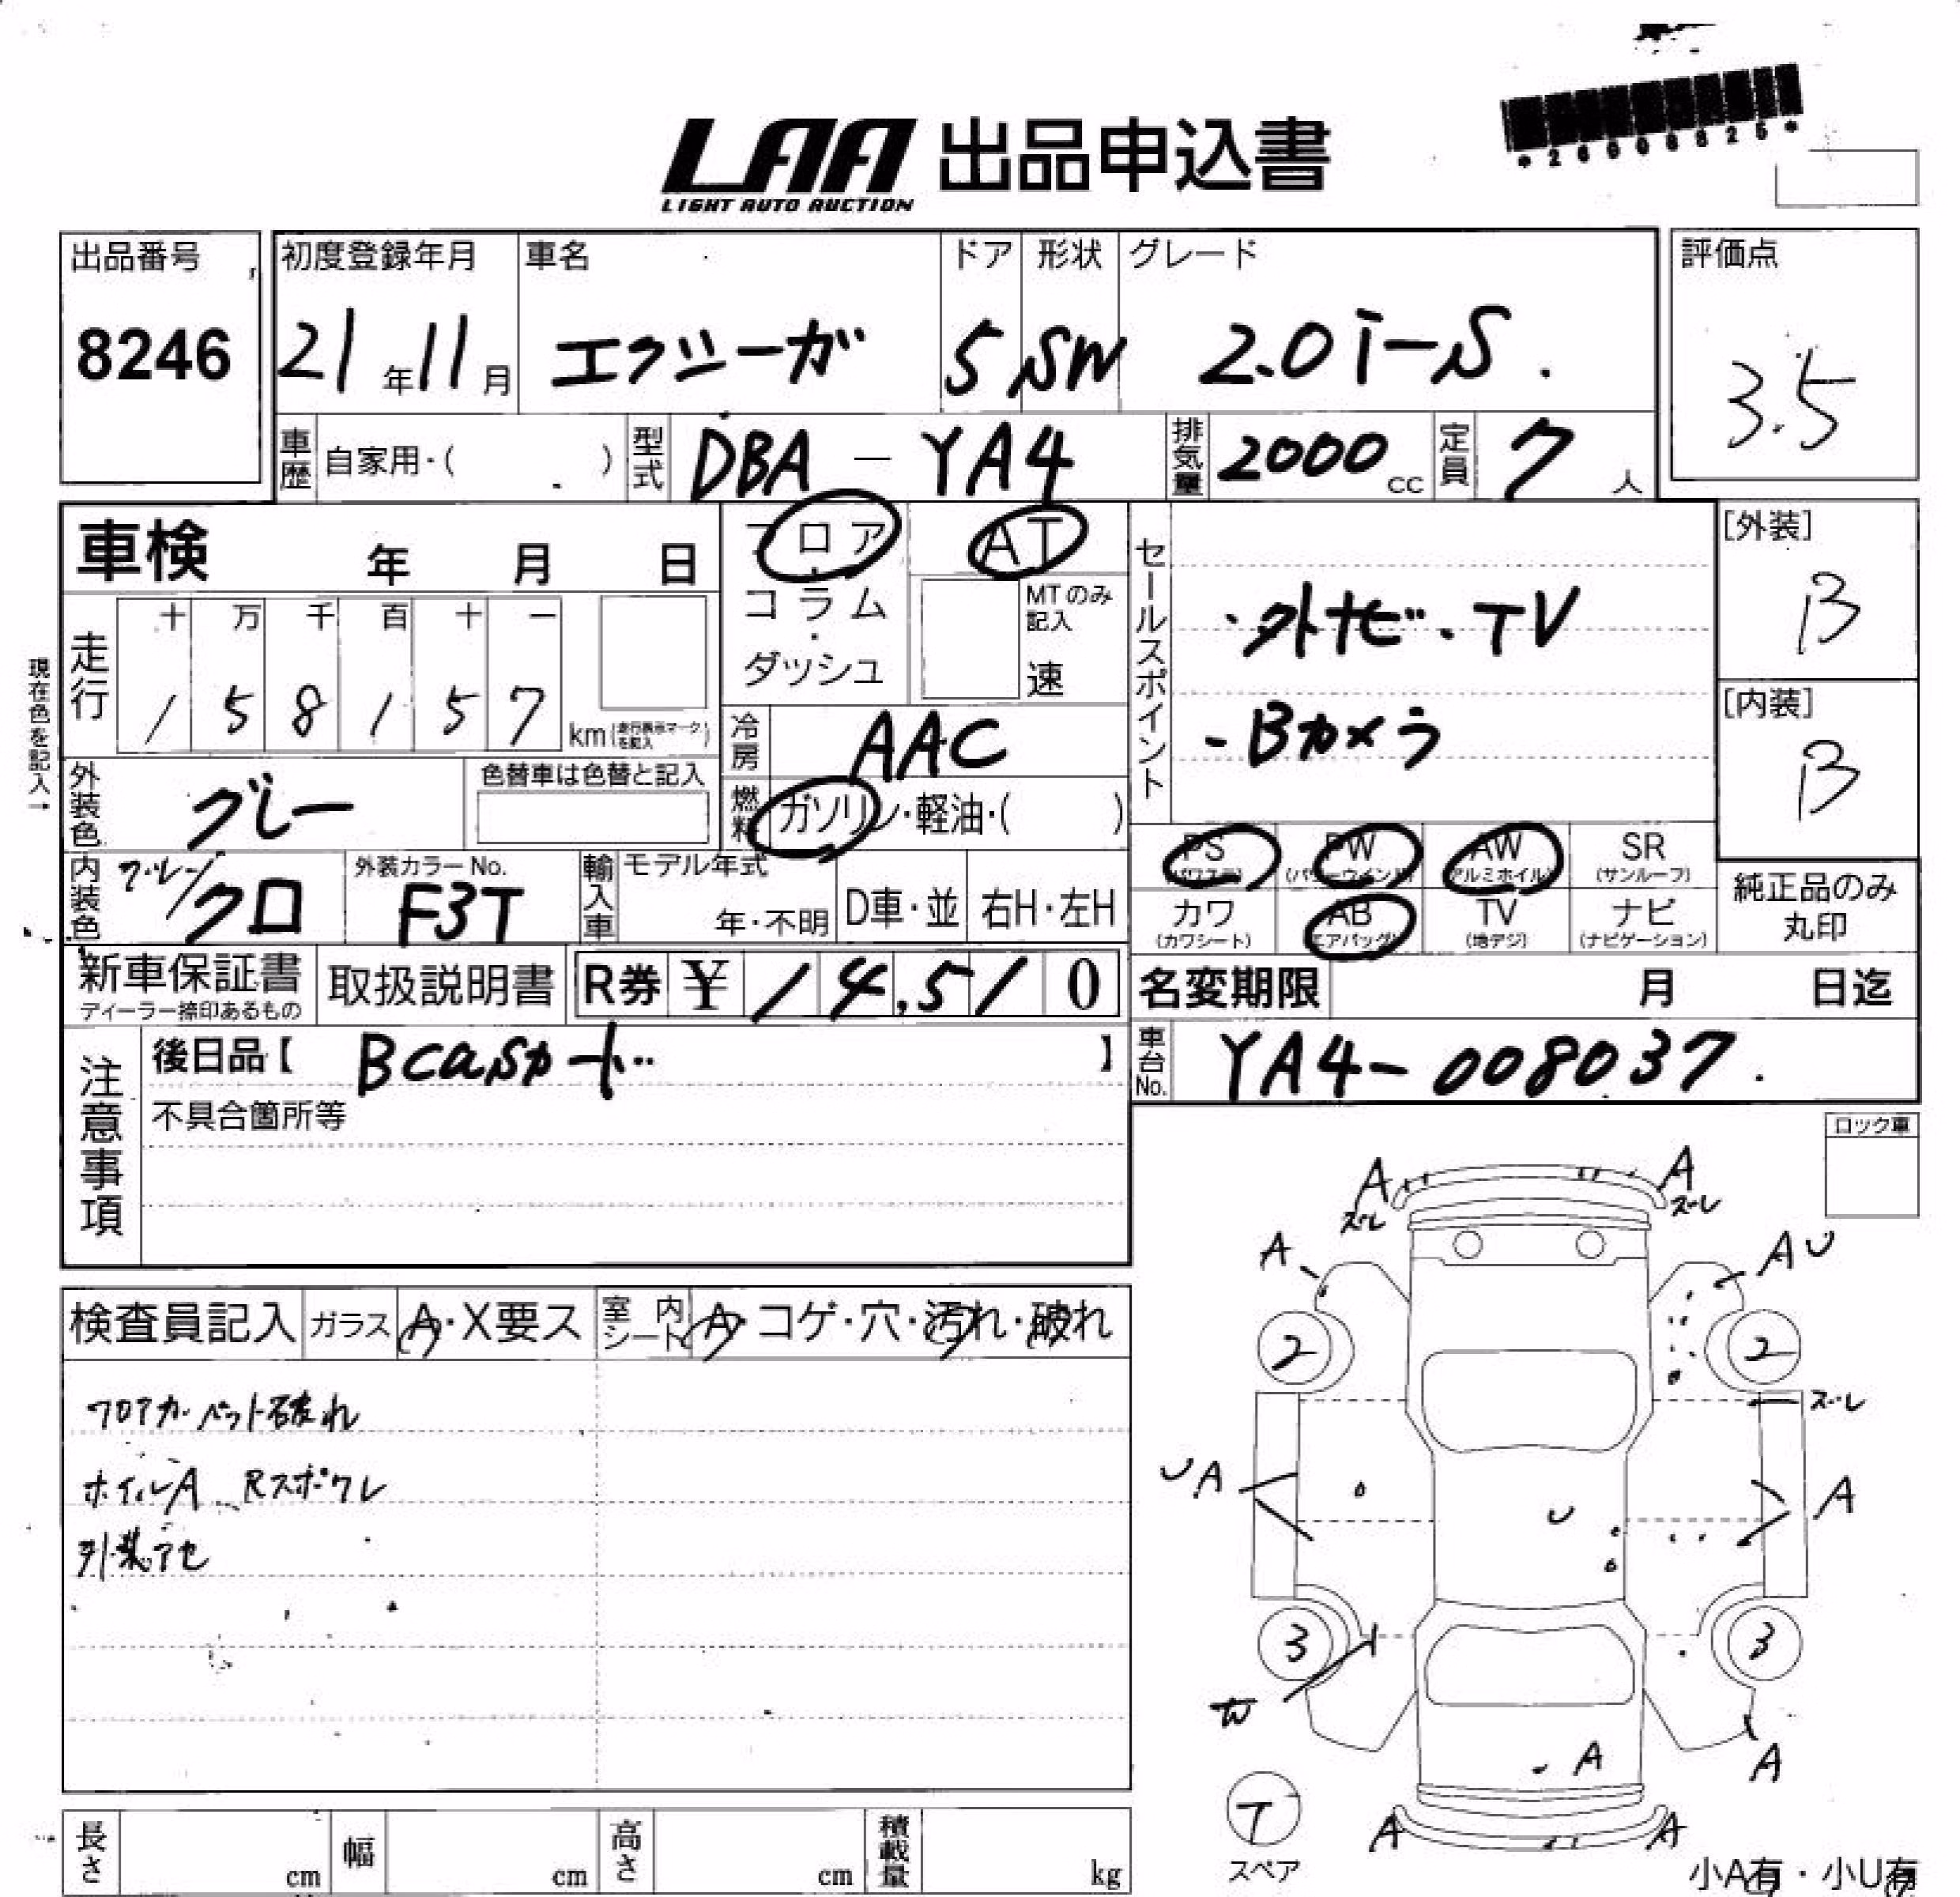 *26008825*
LAA 出品申込書
LIGHT AUTO AUCTION
出品番号 初度登録年月 車名 ドア 形状 グレード 評価点
8246 21年11月 エクシーガ 5 SW 2.0i-S. 3.5
車歴 自家用・( ) 型式 DBA-YA4 排気量 2000cc 定員 7人
車検 年 月 日 フロア AT セールスポイント [外装]
コラム MTのみ記入 ・外ナビ・TV B
ダッシュ 速
走行 十 万 千 百 十 一
1 5 8 1 5 7 km(走行表示マークを記入)
現在色を記入→
冷房 AAC -Bカメラ [内装]
B
外装色 グレー 色替車は色替と記入 燃料 ガソリン・軽油・( )
内装色 グレー/クロ 外装カラーNo. F3T 輸入車 モデル年式 年・不明 D車・並 右H・左H
PS(パワステ) PW(パワーウインド) AW(アルミホイル) SR(サンルーフ)
カワ(カワシート) AB(エアバッグ) TV(地デジ) ナビ(ナビゲーション) 純正品のみ丸印
新車保証書 取扱説明書 R券 ¥ 14,510 名変期限 月 日迄
ディーラー捺印あるもの
注意事項 後日品【 Bcasカード 】 車台No. YA4-008037.
不具合箇所等
ロック車
検査員記入 ガラス A・X要ス 室内シート A・コゲ・穴・汚れ・破れ
フロアカーペット破れ
ホイルA Rスポワレ
外装アセ
A A
ズレ ズレ
A AU
2 2
ズレ
UA U A
3 3
A
A
T
スペア
A A
長さ cm 幅 cm 高さ cm 積載量 kg
小A有・小U有